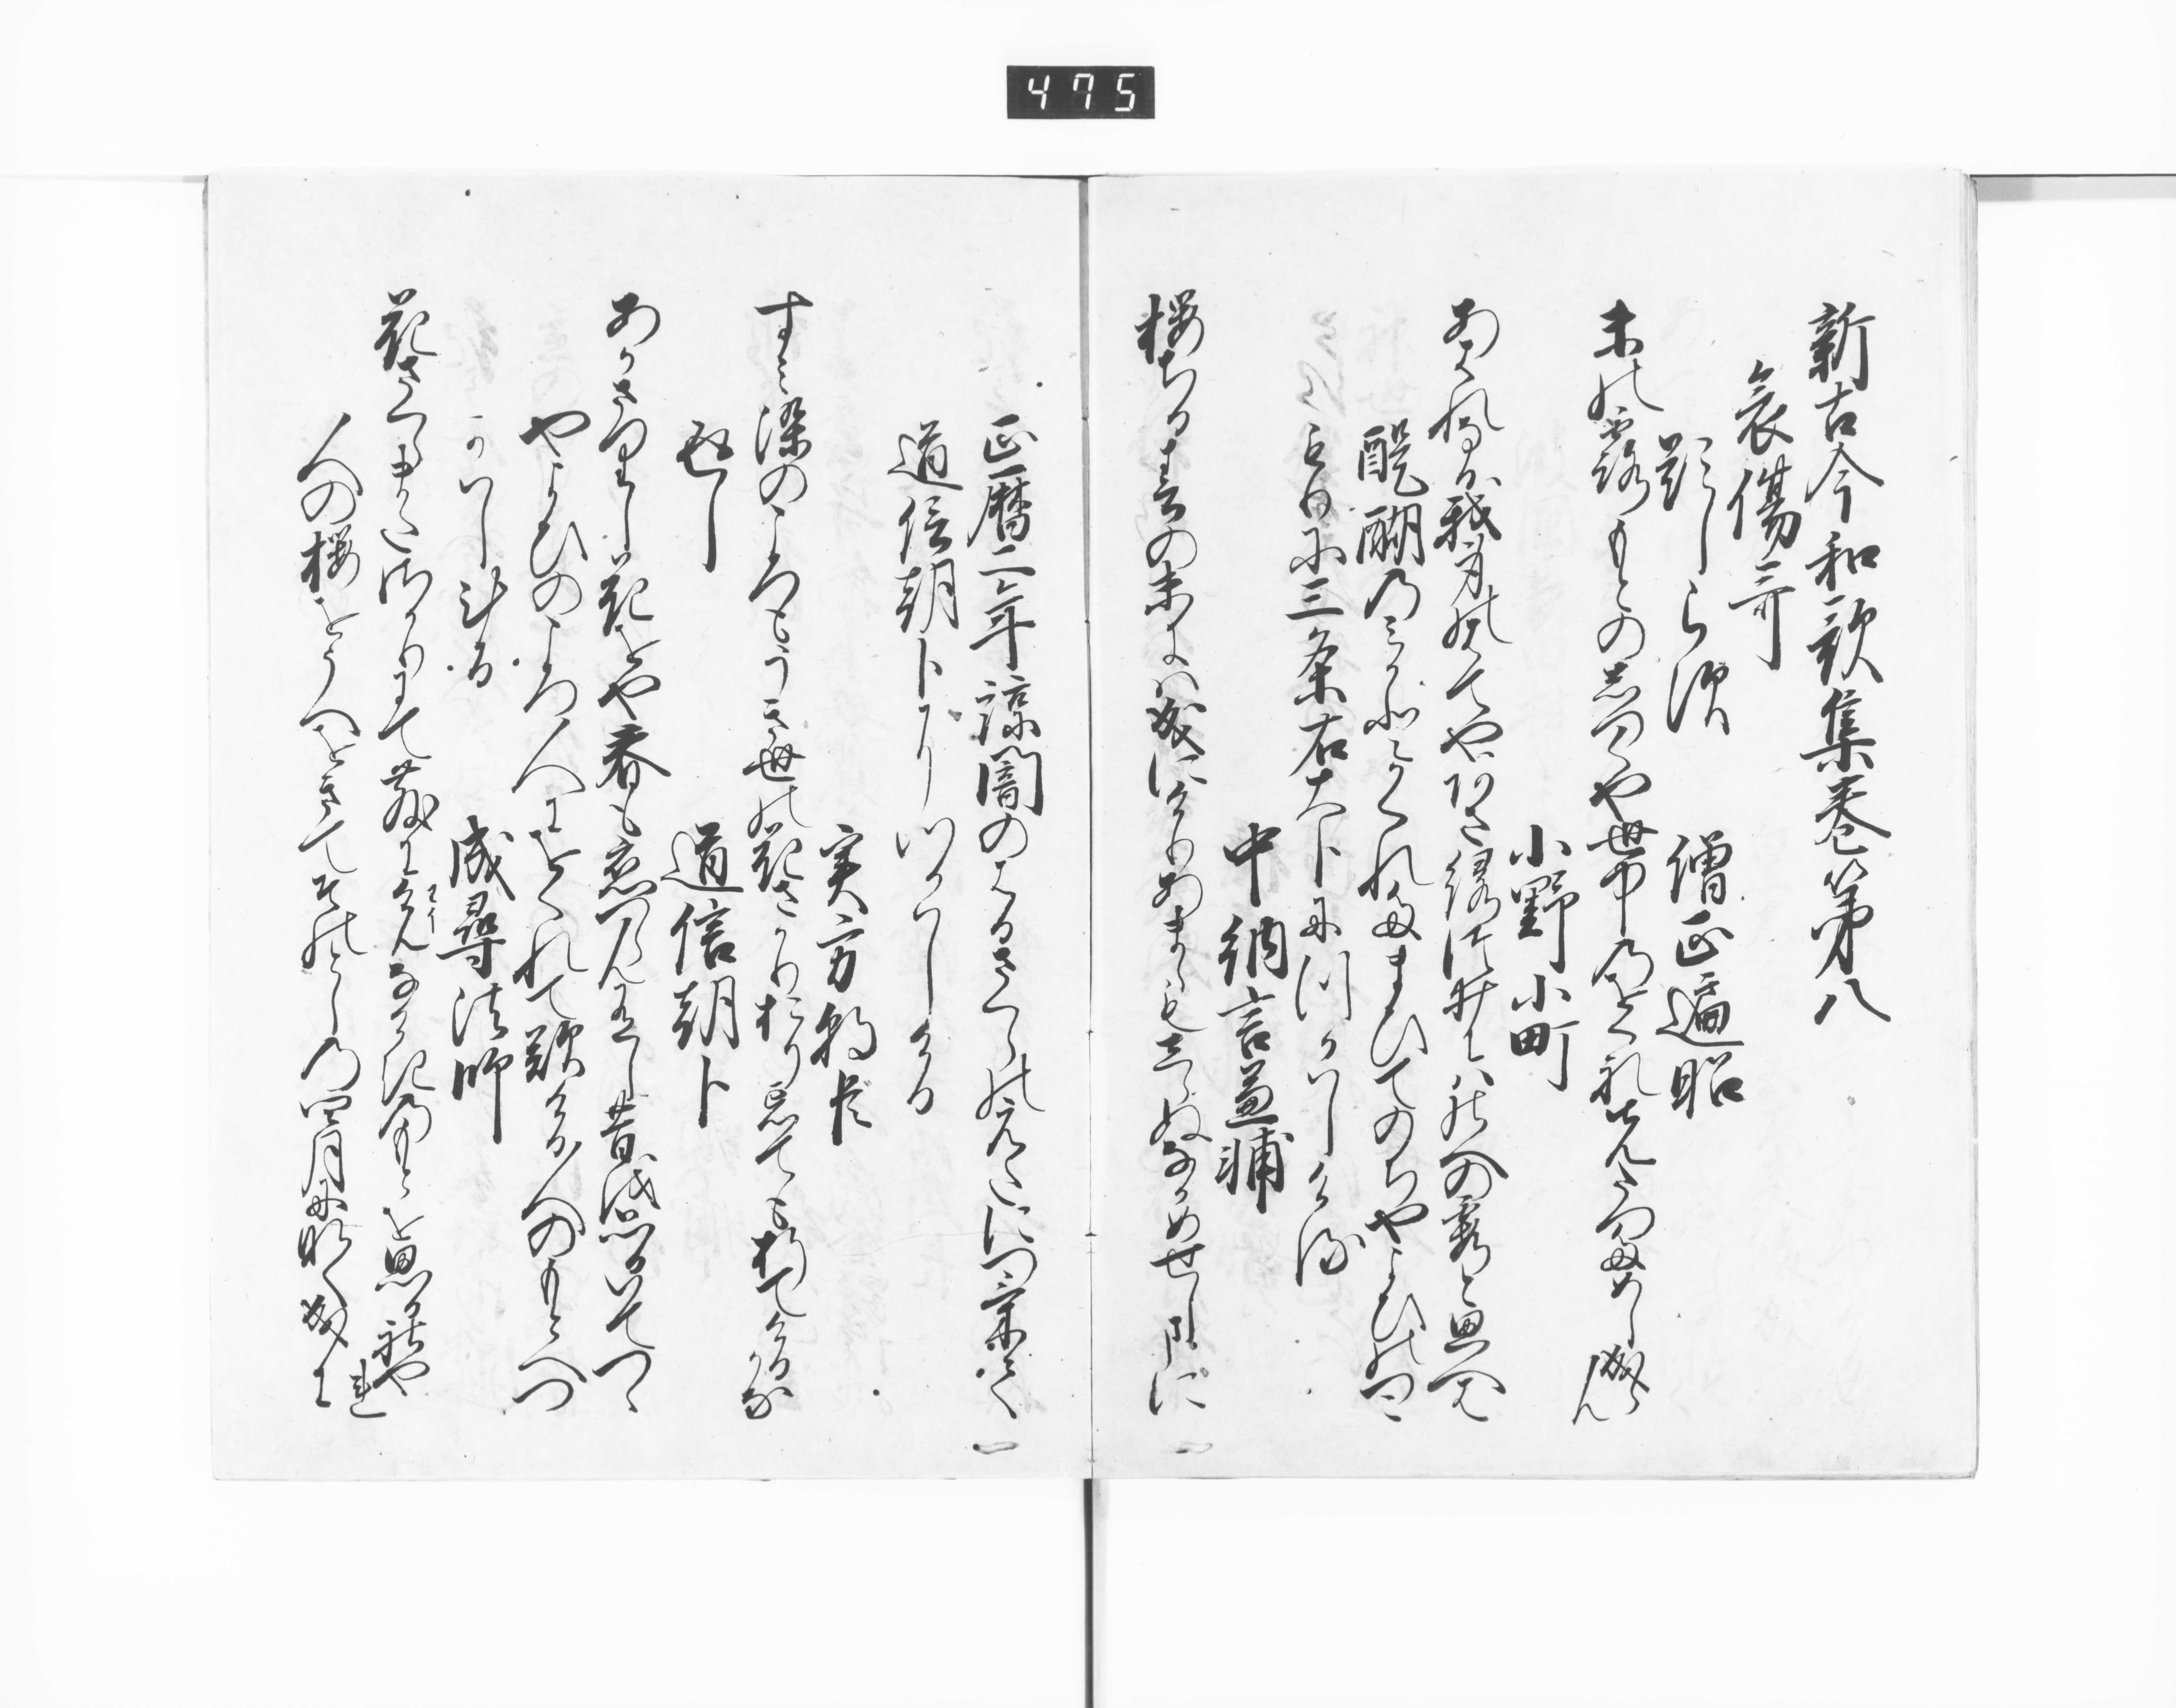 475
新古今和歌集巻第八
哀傷哥
題しらす　僧正遍昭
末の露もとのしつくや世中のをくれさきたつためし成らん
小野小町
あはれなりわか身のはてやあさ緑つゐには野への霞と思へは
醍醐のみかとかくれたまひてのちやよひのつこ
もりに三条右大臣につかはしける
中納言兼輔
桜ちる春の末には成にけりあまゝもしらぬなかめせしまに
正暦二年諒闇のはるさくらのえたにつけて
道信朝臣につかはしける
実方朝臣
すみ染のころもうき世の花さかりおり忘ても折てける哉
返し　道信朝臣
あかさりし花をや春も恋つらんありし昔を思ひいてつゝ
やよひのころ人にをくれて歎ける人のもとへつ
かはしける
成尋法師
花さくらまたさかりにて散にけんなけきのもとを思ひこそやれ
人の桜をうへをきてそのとしの四月になく成に